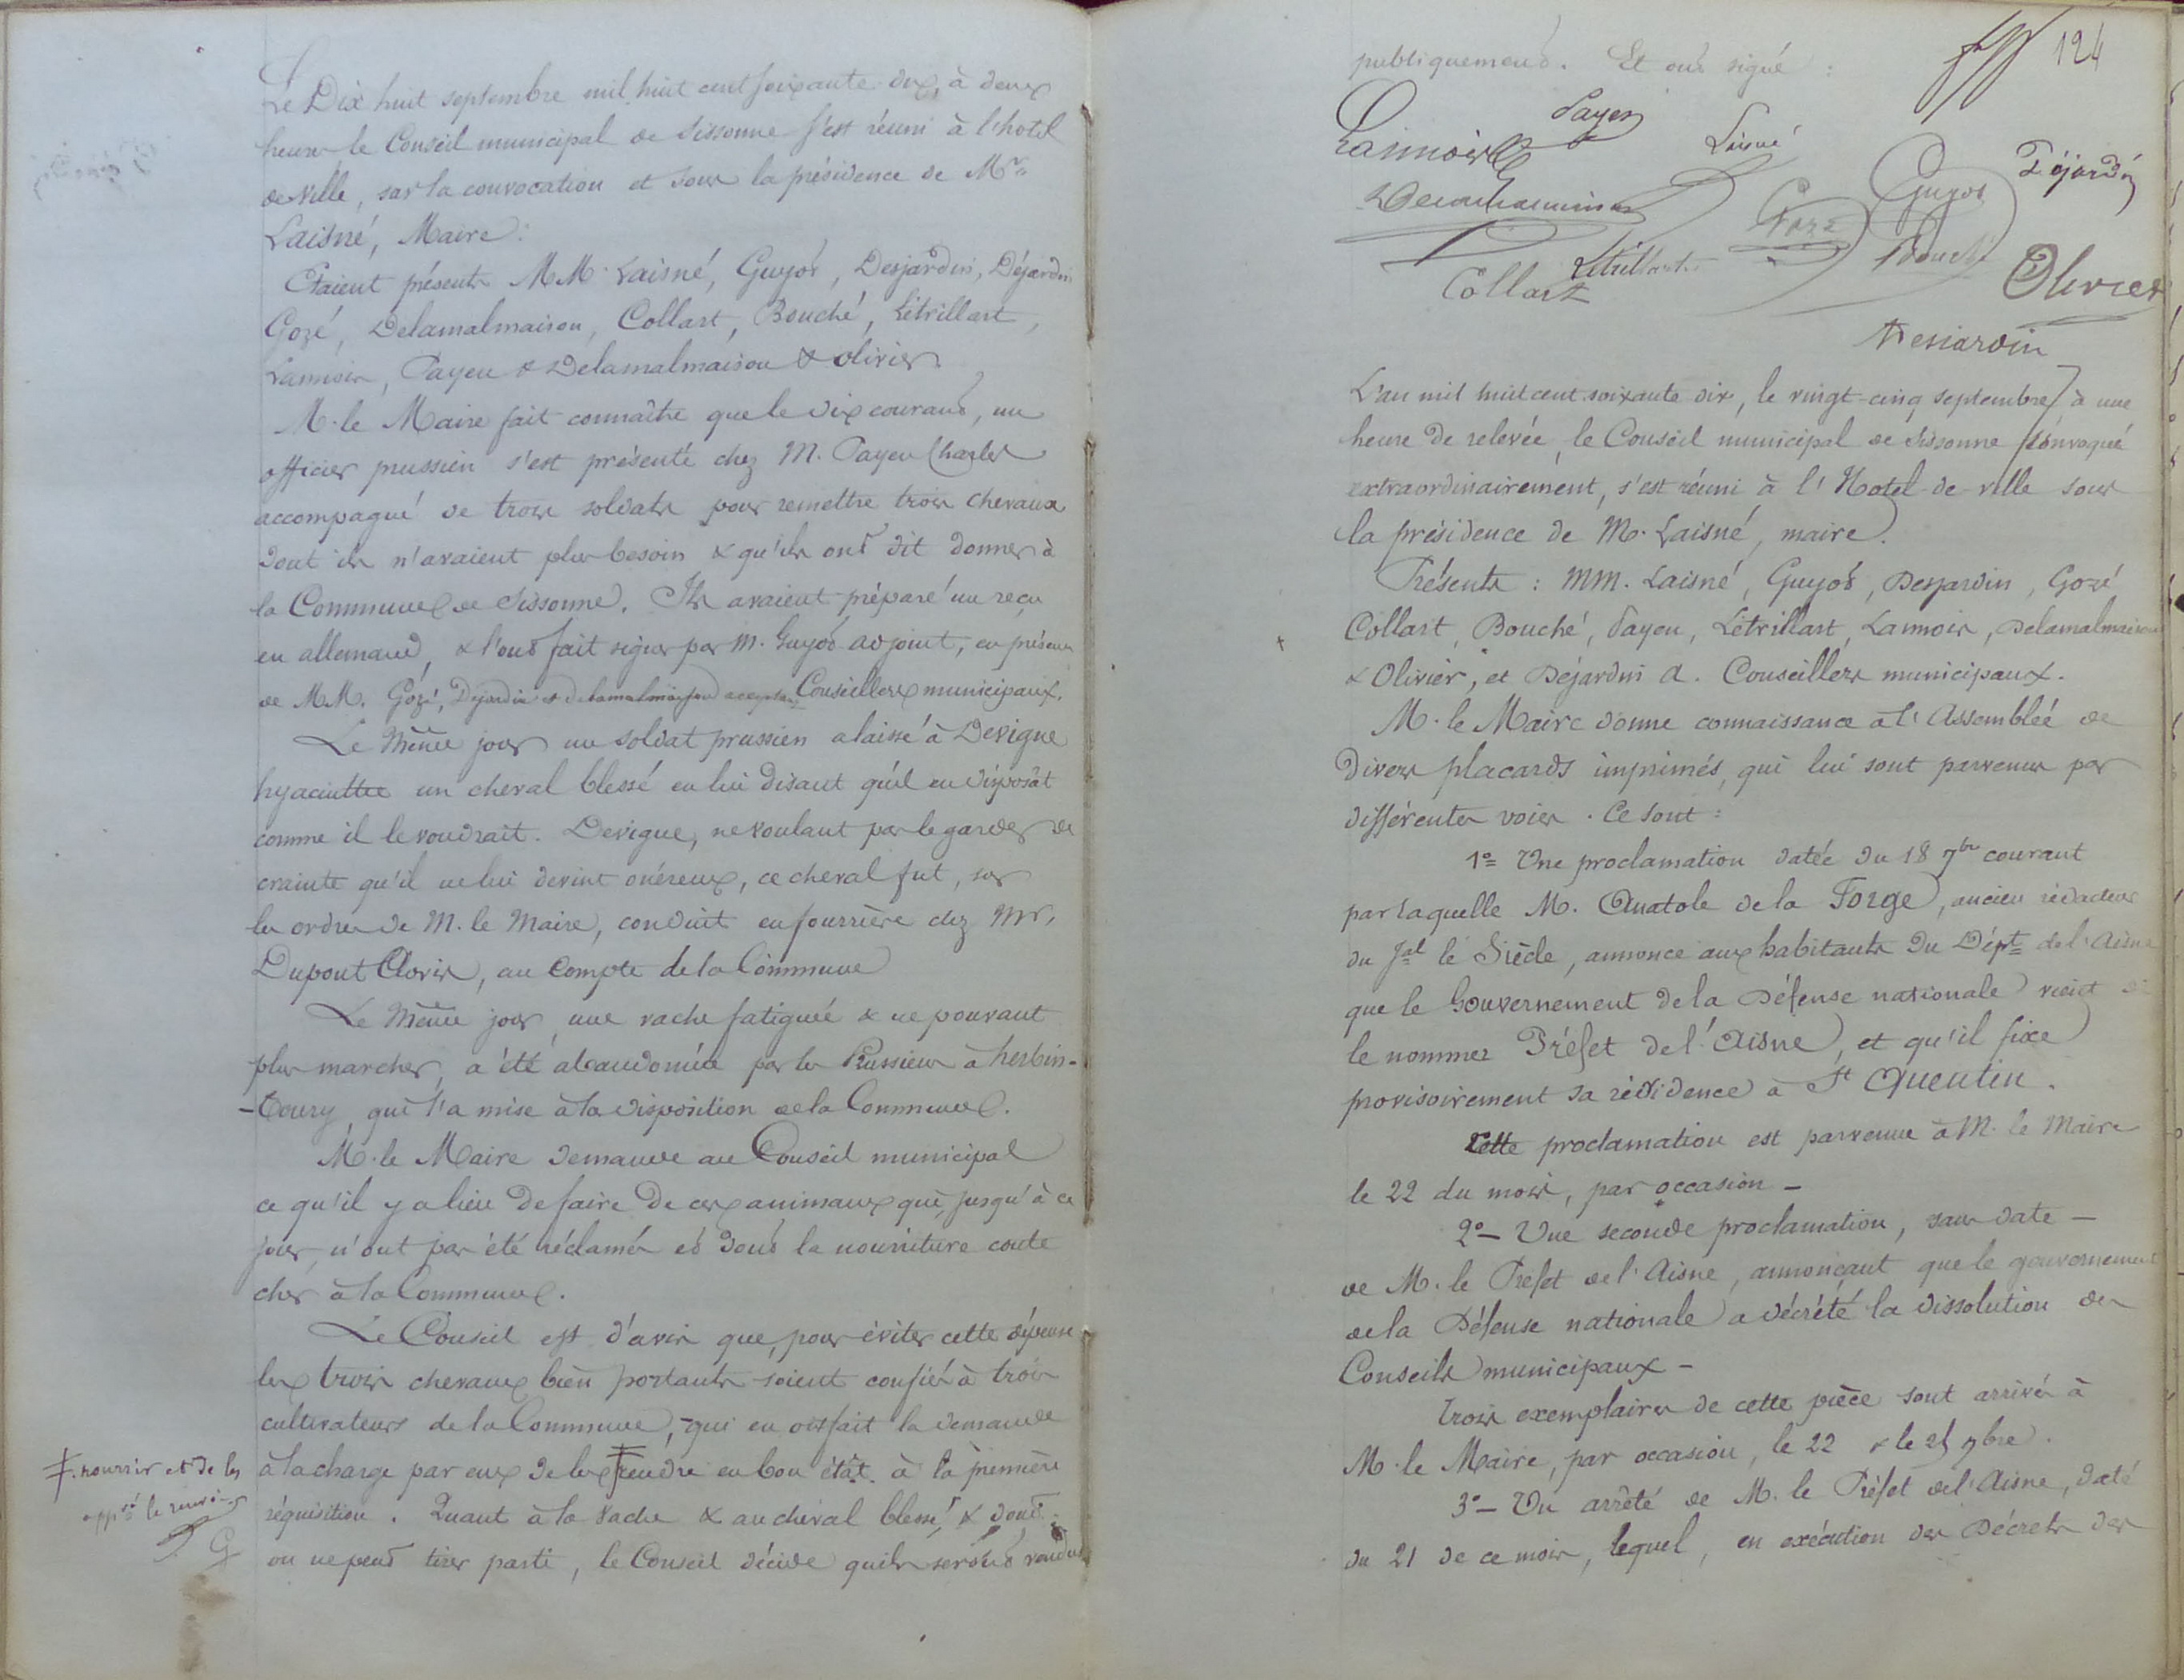 Le Dix huit septembre mil huit cent soixante dix, à deux
heures le Conseil municipal de Sissonne s'est réuni à l'hotel
de ville, sur la convocation et sous la présidence de Mr
Laisné, Maire :
Etaient présents MM. Laisné, Guyot, Desjardin, Déjardin
Gozé, Delamalmaison, Collart, Bouché, Létrillart,
Lannois, Payen & Delamalmaison & Olivier
M. le Maire fait connaître que le dix courant, un
officier prussien s'est présenté chez M. Payen Charles
accompagné de trois soldats pour remettre trois chevaux
dont ils n'avaient plus besoin & qu'ils ont dit donner à
la Commune de Sissonne. Ils avaient préparé un reçu
en allemand, & l'ont fait signer par M. Guyot adjoint, en présence
de MM. Gozé, Dejardin et delamalmaison Conseillers municipaux.
Le Même jour un soldat prussien a laissé à Devigne
hyacinthe un cheval blessé en lui disant qu'il en disposât
comme il le voudrait. Devigne, ne voulant pas le garder de
crainte qu'il ne lui devint onéreux, ce cheval fut, sur
les ordres de M. le Maire, conduit en fourrière chez Mr.
Dupont Clovis, au Compte de la Commune
Le Même jour une vache fatiguée & ne pouvant
plus marcher, a été abandonnée par les Prussiens à herbin-
-Coury qui l'a mise à la disposition de la Commune.
M. le Maire demande au Conseil municipal
ce qu'il y a lieu de faire de ces animaux qui, jusqu'à ce
jour, n'ont pas été réclamés et dont la nourriture coute
cher à la Commune.
Le Conseil est d'avis que, pour éviter cette dépense
les trois chevaux bien portants soient confiés à trois
cultivateurs de la Commune, qui en ont fait la demande
à la charge par eux de les ‡ rendre en bon état à la première
réquisition. Quant à la vache & au cheval blessé, & dont
on ne peut tirer parti, le Conseil décide qu'ils seront vendus
‡. nourrir et de les
appré le renvoi
G
124
publiquement. Et ont signé :
Lannois
Payen
Laisné
Delamalmaison
Gozé
Guyot
Déjardin
Collart
Létrillart
Bouché
Olivier
Desjardin
L'an mil huit cent soixante dix, le vingt-cinq septembre, à une
heure de relevée, le Conseil municipal de Sissonne convoqué
extraordinairement, s'est réuni à l'Hotel de ville sous
la présidence de M. Laisné, maire.
Présents : MM. Laisné, Guyot, Desjardin, Gozé
Collart, Bouché, Payen, Létrillart, Lannois, Delamalmaison
& Olivier, et Déjardin A. Conseillers municipaux.
M. le Maire donne connaissance à l'Assemblée de
divers placards imprimés, qui lui sont parvenus par
différentes voies. Ce sont :
1º= Une proclamation datée du 18 7bre courant
par laquelle M. Anatole de la Forge, ancien rédacteur
du Jal le Siècle, annonce aux habitants du Dépt de l'Aisne
que le Gouvernement de la Défense nationale vient de
le nommer Préfet de l'Aisne, et qu'il fixe
provisoirement sa résidence à St Quentin.
Cette proclamation est parvenue à M. le Maire
le 22 du mois, par occasion -
2º- Une seconde proclamation, sans date -
de M. le Préfet de l'Aisne, annonçant que le gouvernement
de la Défense nationale a décrété la dissolution des
Conseils municipaux -
trois exemplaires de cette pièce sont arrivés à
M. le Maire, par occasion, le 22 & le 25 7bre.
3º- Un arrêté de M. le Préfet de l'Aisne, daté
du 21 de ce mois, lequel, en exécution des Décrets des